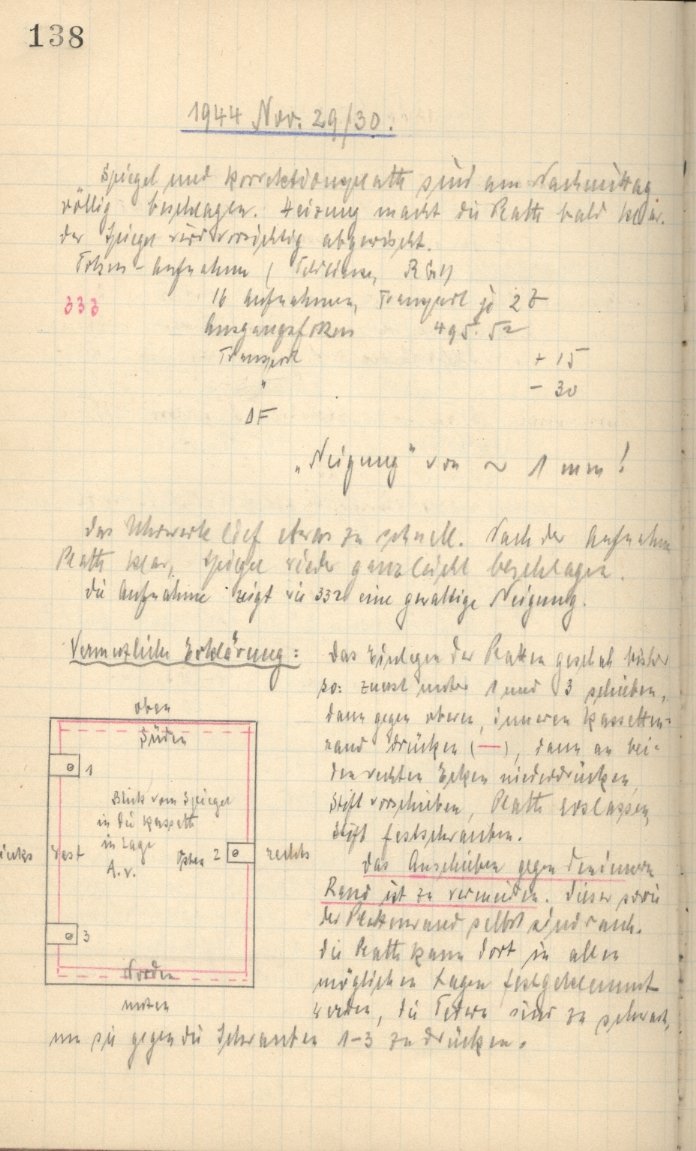 138
1944 Nov. 29/30.
Spiegel und Korrektionsplatte sind am Nachmittag
völlig beschlagen. Heizung macht die Platte bald klar.
der Spiegel wird vorsichtig abgewischt.
Fokus-Aufnahme, RG 11
333 16 Aufnahmen, Transport je 2
Ausgangsfokus 495.52
Transport + 15
" - 30
ΔF
„Neigung" von ~ 1 mm!
das Uhrwerk lief etwas zu schnell. Nach der Aufnahme
Platte klar, Spiegel wieder ganz leicht beschlagen.
die Aufnahme zeigt wie 332 eine gewaltige Neigung.
Vermutliche Erklärung:
das Einlegen der Platten geschah bisher
so: zuerst unter 1 und 3 schieben,
dann gegen oberen, inneren Kassetten-
rand drücken (—), dann an bei-
den rechten Ecken niederdrücken,
Stift vorschieben, Platte loslassen,
Stift festschrauben.
das Anschieben gegen den innern
Rand ist zu vermeiden. dieser sowie
der Plattenrand selbst sind rauh.
die Platte kann dort in allen
möglichen Lagen festgeklemmt
werden, die Federn sind zu schwach,
um sie gegen die Schrauben 1-3 zu drücken.
oben
Süden
1
Blick vom Spiegel
in die Kassette
in Lage
A.v.
links
West
Osten 2
rechts
3
Norden
unten